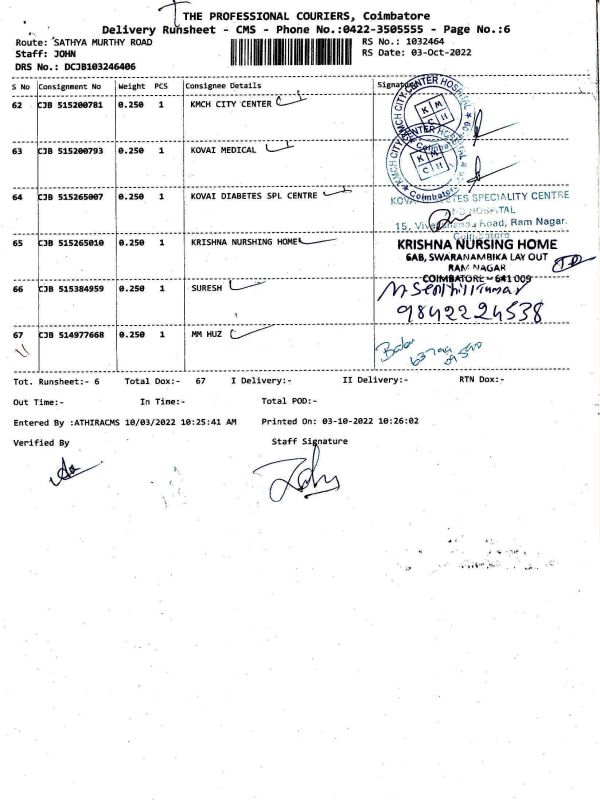 THE PROFESSIONAL COURIERS, Coimbatore
Delivery Runsheet - CMS - Phone No.:0422-3505555 - Page No.:6
Route: SATHYA MURTHY ROAD
RS No.: 1032464
Staff: JOHN
RS Date: 03-Oct-2022
DRS No.: DCJB103246406
S No Consignment No Weight PCS Consignee Details Signature
62 CJB 515200781 0.250 1 KMCH CITY CENTER
KMCH CITY CENTER HOSPITAL
K M
C H
Coimbatore
63 CJB 515200793 0.250 1 KOVAI MEDICAL
KMCH CITY CENTER HOSPITAL
K M
C H
Coimbatore
64 CJB 515265007 0.250 1 KOVAI DIABETES SPL CENTRE
SPECIALITY CENTRE
15, Ram Nagar.
Coimbatore
65 CJB 515265010 0.250 1 KRISHNA NURSHING HOME
KRISHNA NURSING HOME
6AB, SWARANAMBIKA LAY OUT
RAM NAGAR
COIMBATORE - 641 009
66 CJB 515384959 0.250 1 SURESH
M Senthilkumar
9842224538
67 CJB 514977668 0.250 1 MM HUZ
Babu
Tot. Runsheet:- 6 Total Dox:- 67 I Delivery:- II Delivery:- RTN Dox:-
Out Time:- In Time:- Total POD:-
Entered By :ATHIRACMS 10/03/2022 10:25:41 AM Printed On: 03-10-2022 10:26:02
Verified By Staff Signature